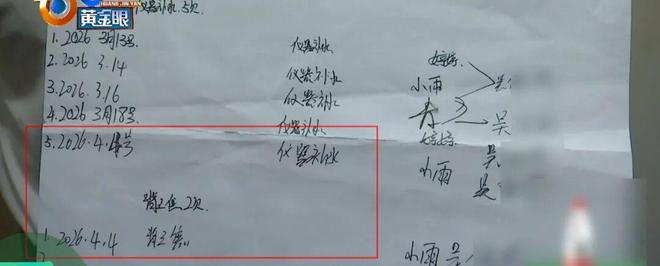 HUANG JIN YAN
黄金眼
仪器补水 5次
1. 2026 3月13号 仪器补水
2. 2026 3.14 仪器补水 小雨
3. 2026 3.16 仪器补水
4. 2026 3月18号 仪器补水 吴
5. 2026.4.4号 仪器补水 小雨 吴
吴
2次
1. 2026.4.4 小雨 吴
2